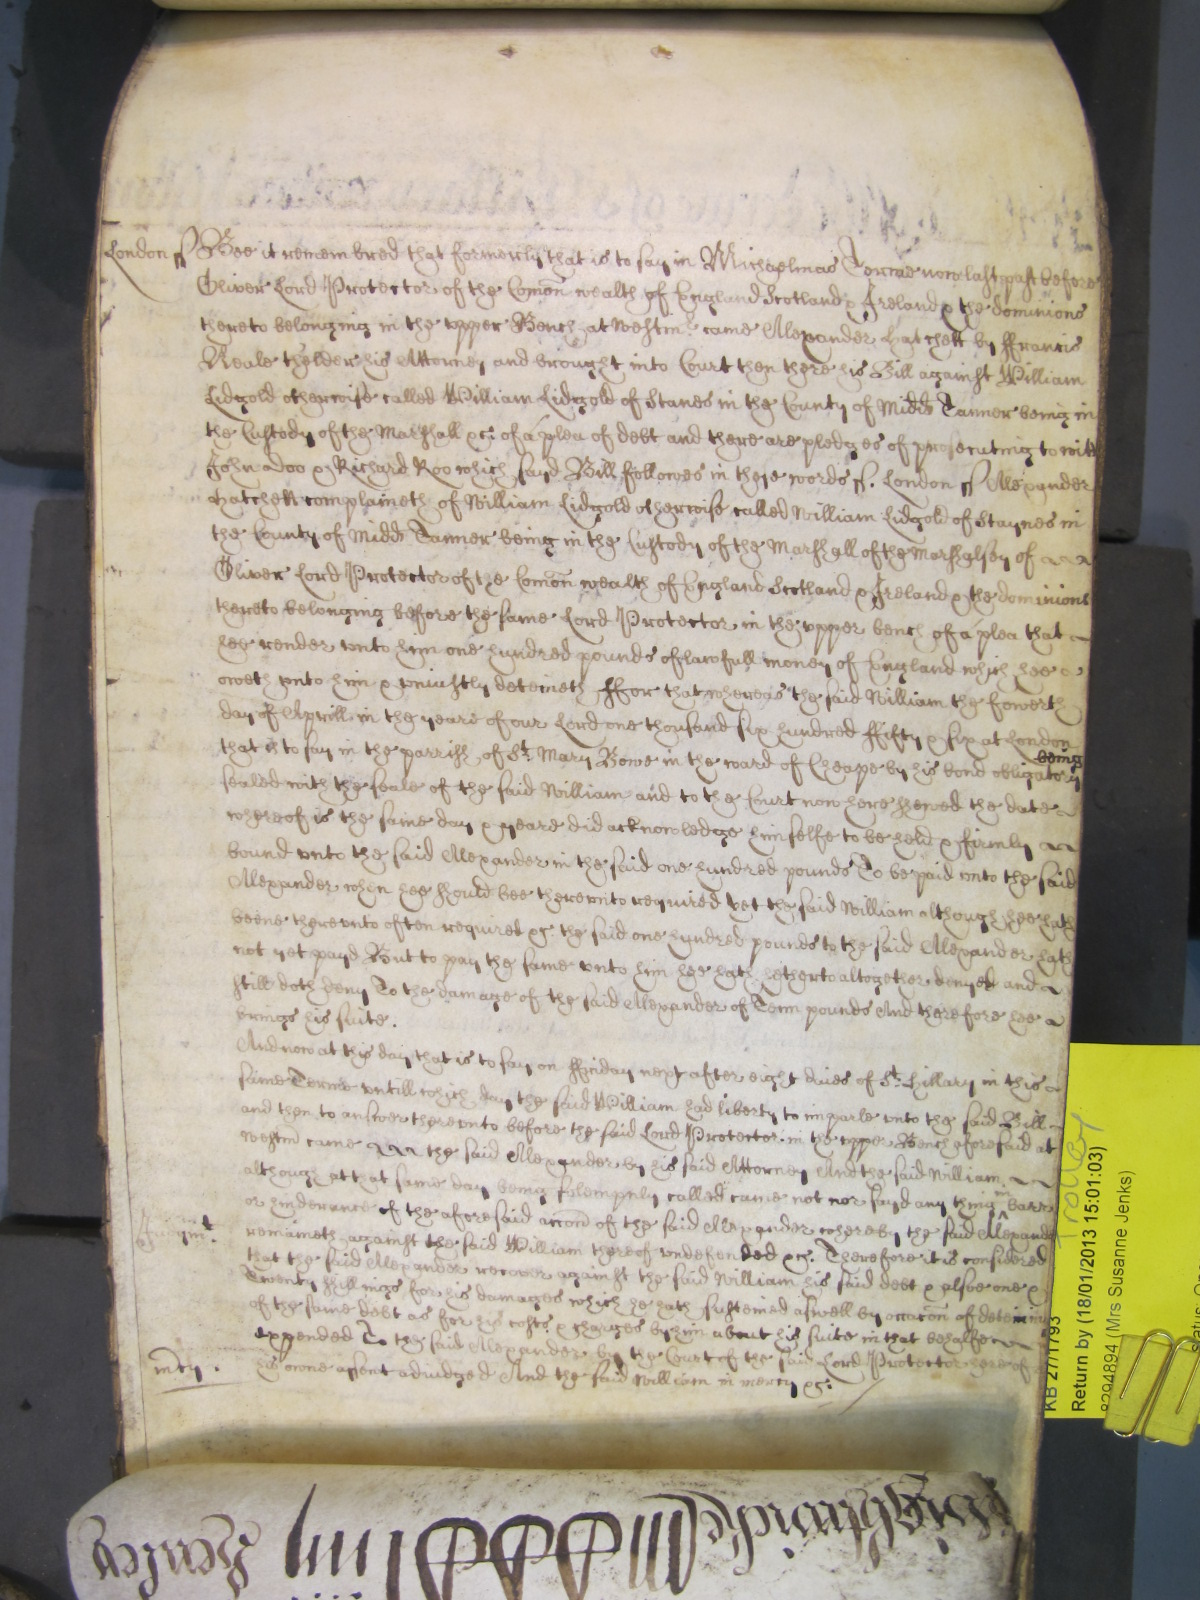 London ss Bee it remembred that formerly that is to say in Michaelmas Terme now last past before
Oliver Lord Protector of the Comon wealth of England Scotland & Ireland & the dominions
thereto belonging in the upper Bench at Westmr came Alexander Hatchett by Francis
Neale thelder his Attorney and brought into Court then there his Bill against William
Lidgold otherwise called William Lidgold of Stanes in the County of Midds Tanner being in
the Custody of the Marshall &c of a plea of debt and there are pledges of prosecuting to witt
John Doo & Richard Roo which said Bill followes in these words ss. London ss Alexander
Hatchett complaineth of William Lidgold otherwise called William Lidgold of Staynes in
the County of Midds Tanner being in the Custody of the Marshall of the Marshalsey of
Oliver Lord Protector of the Comon wealth of England Scotland & Ireland & the dominions
thereto belonging before the same Lord Protector in the upper bench of a plea that
hee render unto him one hundred pounds of lawfull money of England which hee
oweth unto him & uniustly deteineth ffor that whereas the said William the fowerth
day of Aprill in the yeare of our Lord one thousand six hundred ffifty & six at London
that is to say in the parrish of St Mary Bowe in the ward of Cheape by his bond obligatory being
sealed with the seale of the said William and to the Court now here shewed the date
whereof is the same day & yeare did acknowledge himselfe to be held & firmly
bound unto the said Alexander in the said one hundred pounds To be paid unto the said
Alexander when hee should bee thereunto required yet the said William although hee hath
beene thereunto often required &c the said one hundred pounds to the said Alexander hath
not yet payd But to pay the same unto him hee hath hitherto altogether denyed and
still doth deny To the damage of the said Alexander of Tenn pounds And therefore hee
brings his suite.
And now at this day that is to say on ffriday next after eight daies of St Hillary in this
same Terme untill which day the said William had liberty to imparle unto the said Bill
and then to answer thereunto before the said Lord Protector in the upper Bench aforesaid at
Westmr came the said Alexander by his said Attorney And the said William
although at that same day being solempnly called came not nor sayd any thing in barr
or hinderance of the aforesaid accon of the said Alexander whereby the said Alexander
Judgmt. remaineth against the said William thereof undefended &c. Therefore it is considered
that the said Alexander recover against the said William his said debt & alsoe one &
Twenty shillings for his damages which he hath susteined aswell by occacon of deteining
of the same debt as for his costs & charges by him about his suite in that behalfe
expended To the said Alexander by the Court of the said Lord Protector here of
mcy. his owne assent adiudged And the said William in mercy &c.
trolley
KB 27/1793
Return by (18/01/2013 15:01:03)
8294894 (Mrs Susanne Jenks)